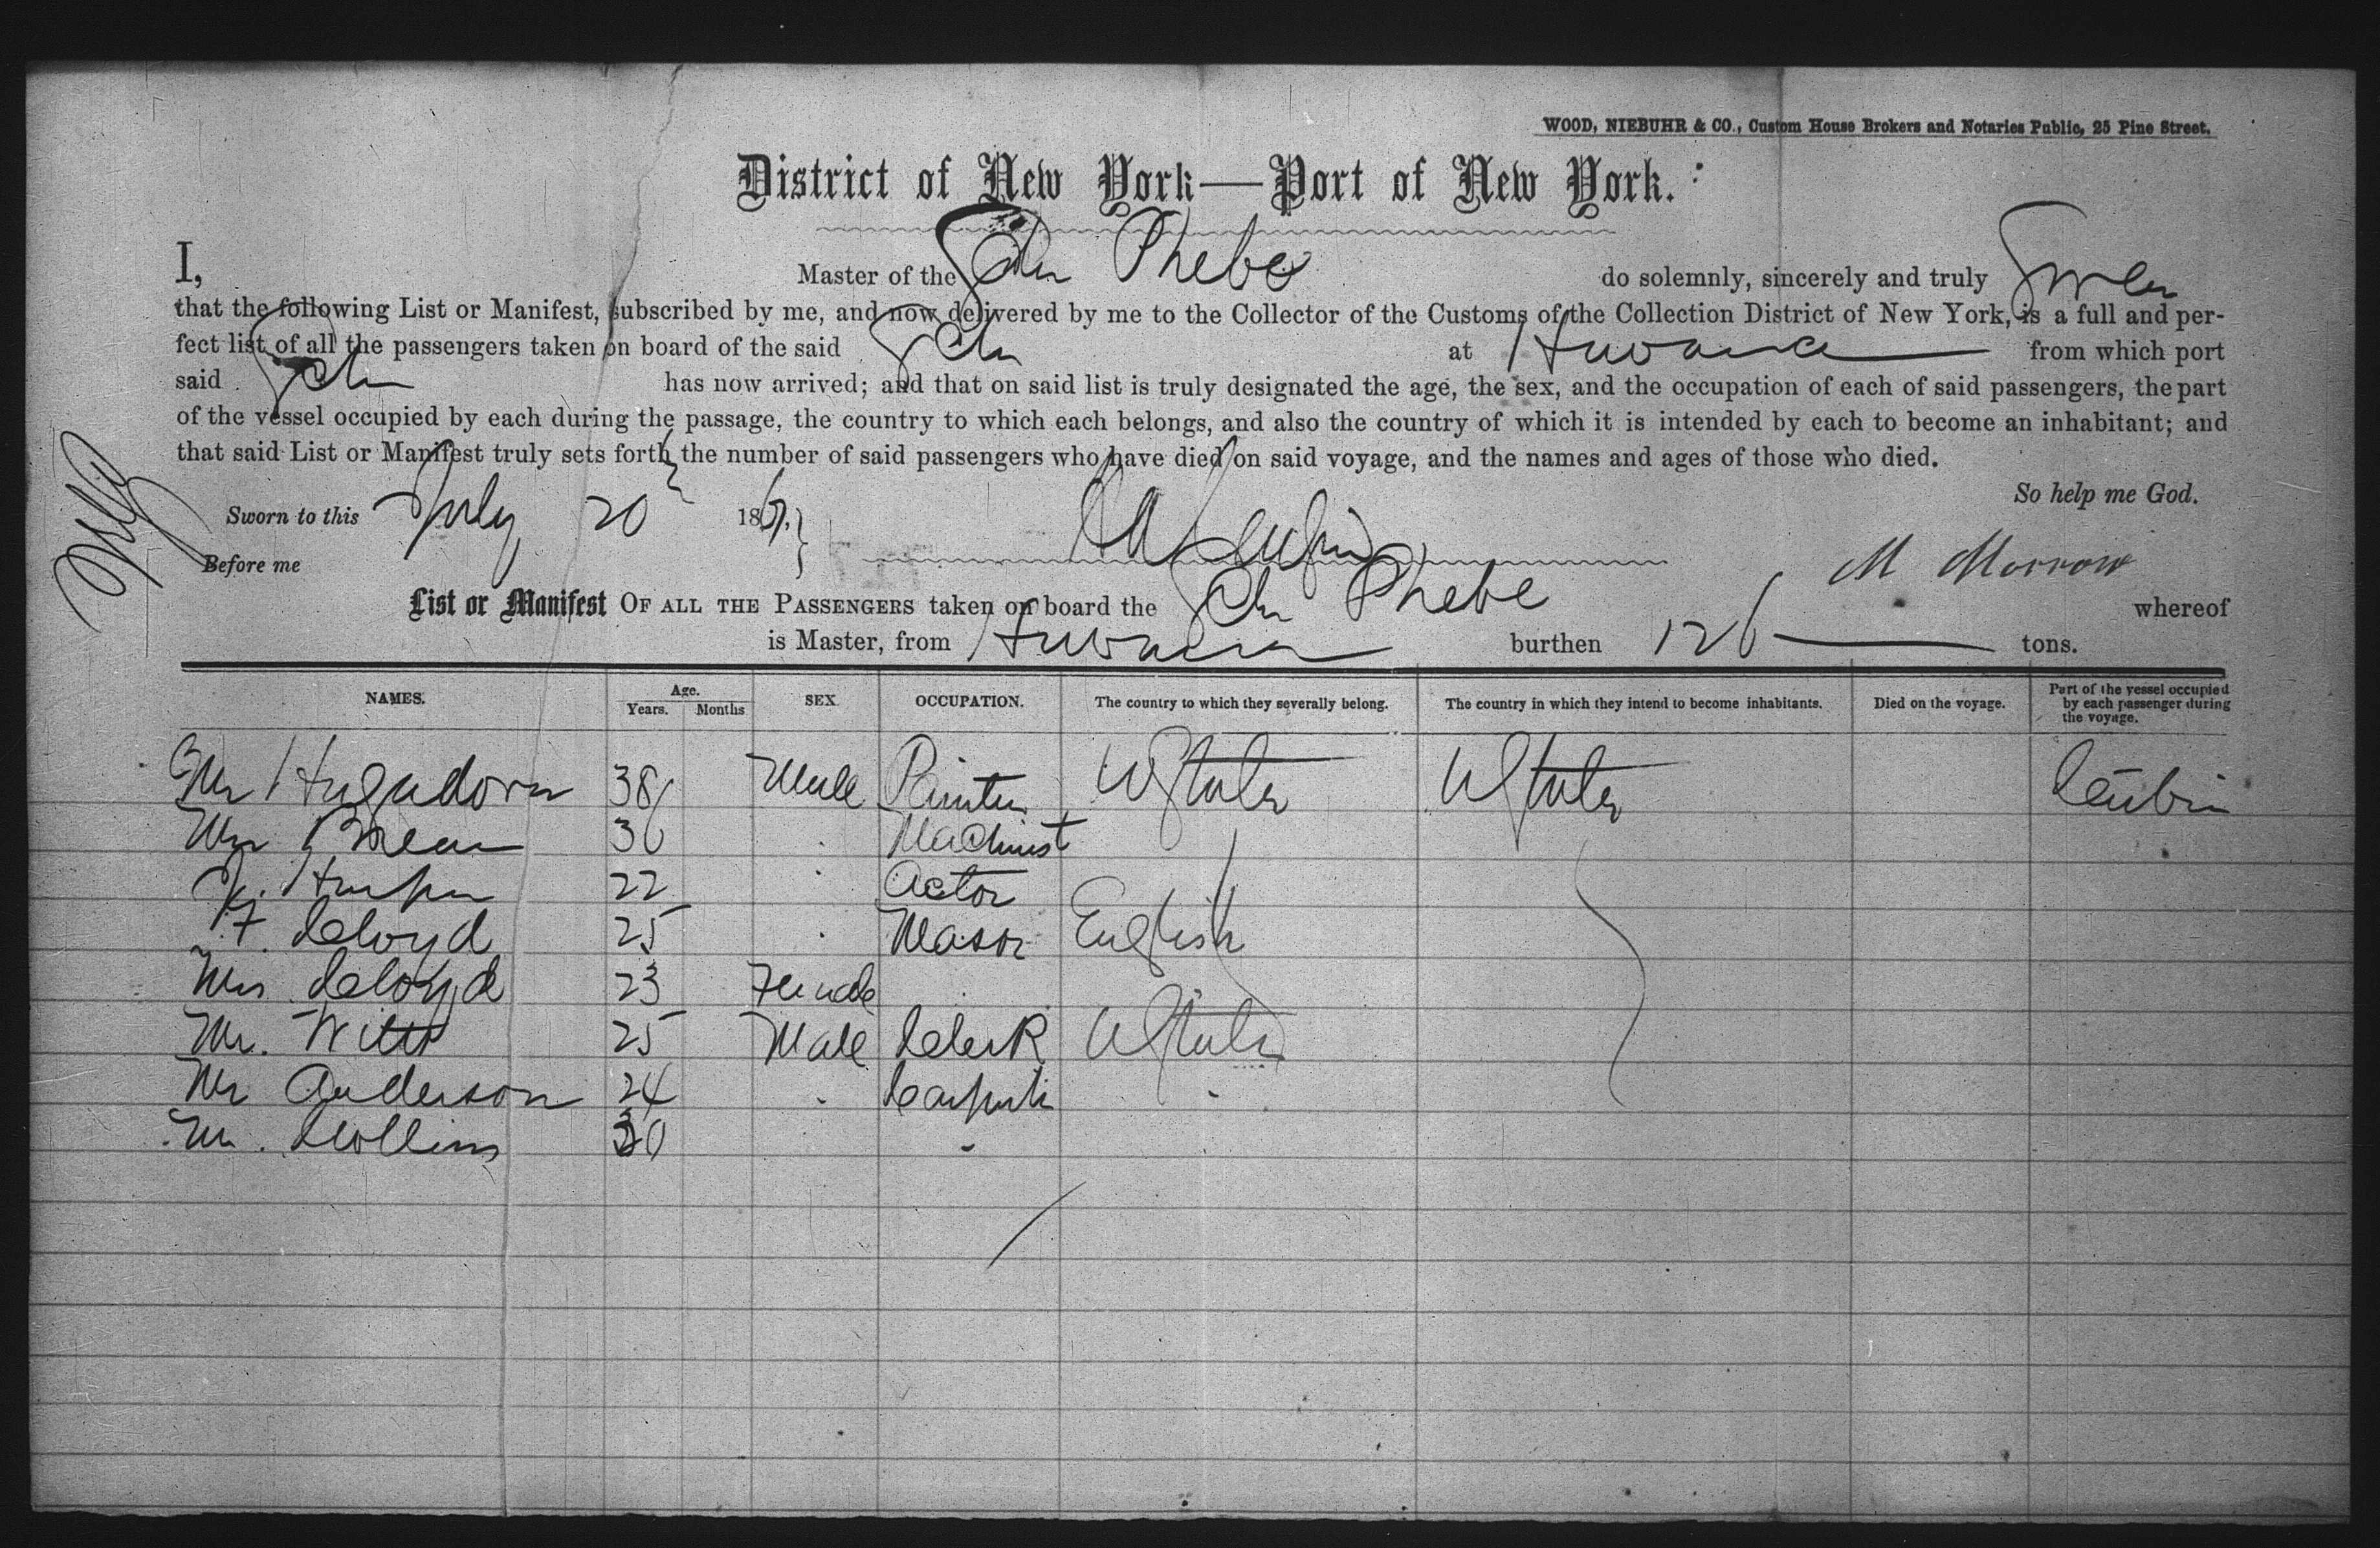 WOOD, NIEBUHR & CO., Custom House Brokers and Notaries Public, 25 Pine Street.
District of New York—Port of New York.
I, Master of the Schr Phebe do solemnly, sincerely and truly Swear
that the following List or Manifest, subscribed by me, and now delivered by me to the Collector of the Customs of the Collection District of New York, is a full and per-
fect list of all the passengers taken on board of the said Schr at Havana from which port
said Schr has now arrived; and that on said list is truly designated the age, the sex, and the occupation of each of said passengers, the part
of the vessel occupied by each during the passage, the country to which each belongs, and also the country of which it is intended by each to become an inhabitant; and
that said List or Manifest truly sets forth the number of said passengers who have died on said voyage, and the names and ages of those who died.
So help me God.
Sworn to this July 20 1867.
Before me
M Morrow
List or Manifest OF ALL THE PASSENGERS taken on board the Schr Phebe whereof
is Master, from Havana burthen 126 tons.
NAMES. Age. Years. Months SEX OCCUPATION. The country to which they severally belong. The country in which they intend to become inhabitants. Died on the voyage. Part of the vessel occupied by each passenger during the voyage.
Mr Hagadorn 38 Male Painter U States U States Cabin
Mr 36 Machinist
Harper 22 Actor
F. Cloyd 25 Mason English
Mrs Cloyd 23 Female
Mr. Witt 25 Male Clerk U States
Mr Anderson 24 Carpentr
Mr. Collins 30